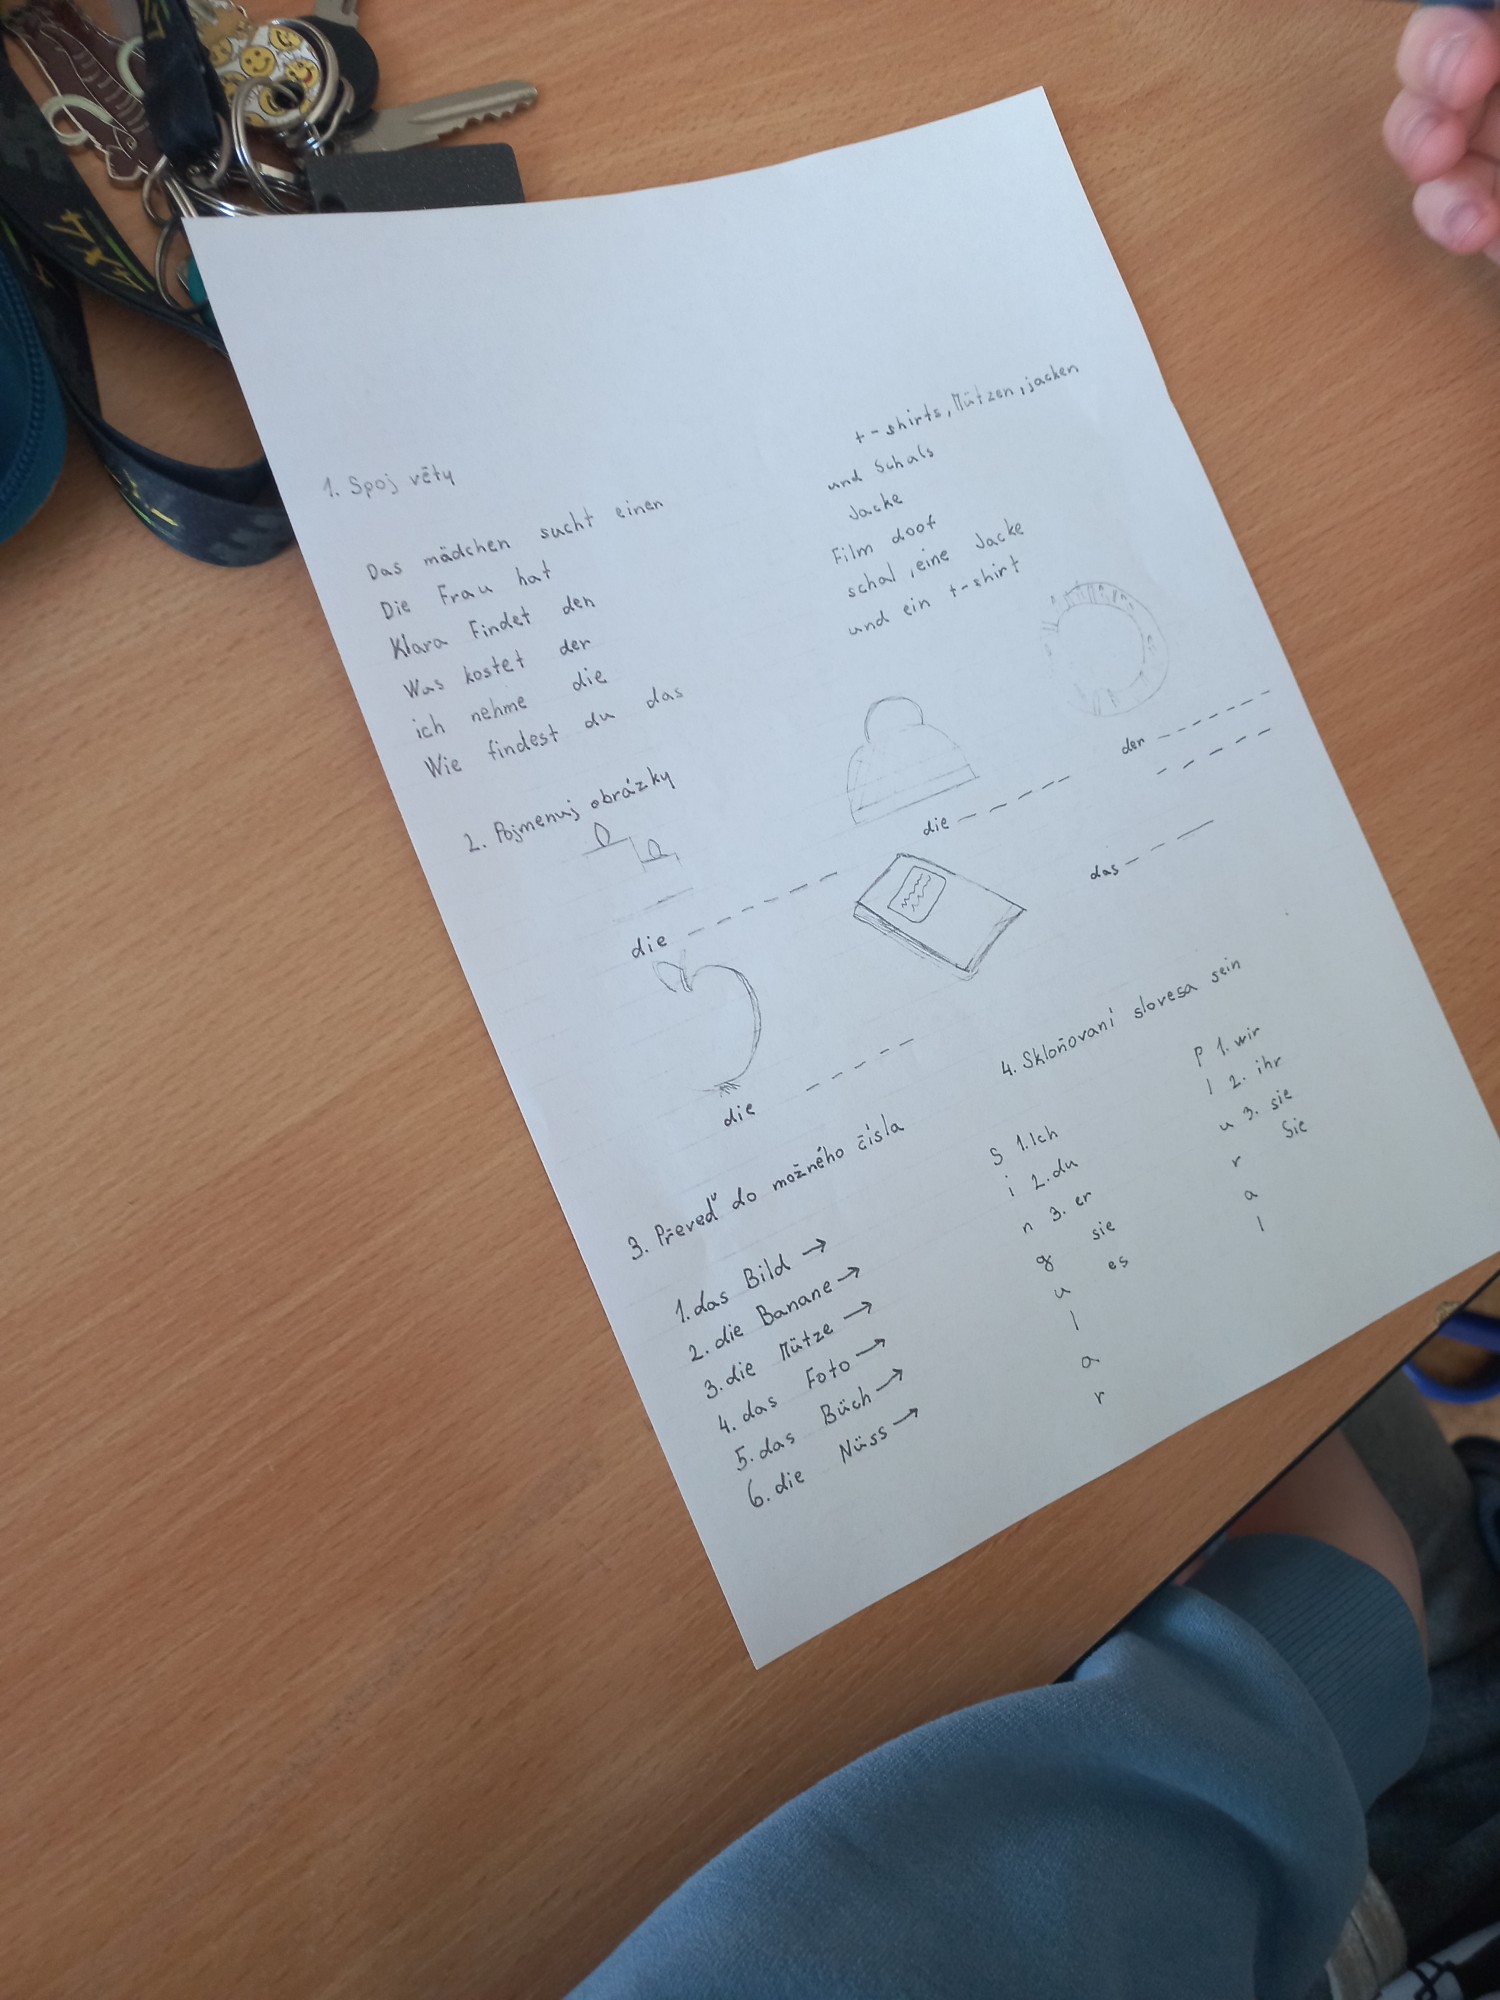 1. Spoj věty
Das mädchen sucht einen
Die Frau hat
Klara Findet den
Was kostet der
ich nehme die
Wie findest du das
t-shirts, Mützen, jacken
und Schals
Jacke
Film doof
schal, eine Jacke
und ein t-shirt
2. Pojmenuj obrázky
die
die
der
die
das
3. Převeď do možného čísla
1. das Bild →
2. die Banane →
3. die Mütze →
4. das Foto →
5. das Büch →
6. die Nüss →
4. Skloňovaní slovesa sein
S 1. Ich
i 2. du
n 3. er
g sie
u es
l
a
r
P 1. wir
l 2. ihr
u 3. sie
r Sie
a
l